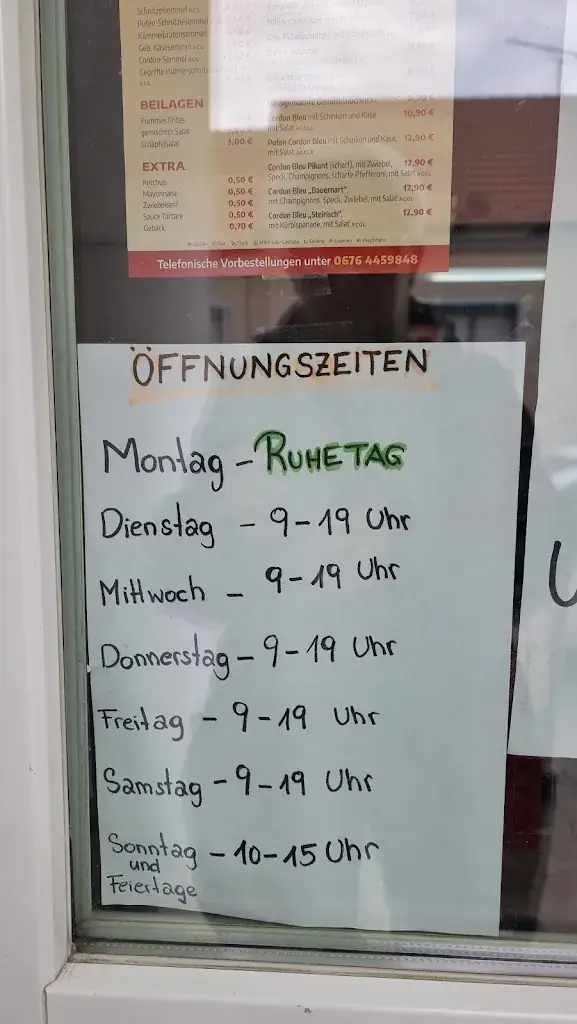 Schnitzelsemmel
Puten-Schnitzelsemmel
Kümmelbratensemmel
Geb. Käsesemmel
Cordon-Semmel
BEILAGEN
Pommes Frites
gemischter Salat
Erdäpfelsalat 3,00 €
EXTRA
Ketchup 0,50 €
Mayonnaise 0,50 €
Zwiebelsenf 0,50 €
Sauce Tartare 0,50 €
Gebäck 0,70 €
Cordon Bleu mit Schinken und Käse, 10,90 €
mit Salat
Puten Cordon Bleu mit Schinken und Käse, 12,90 €
mit Salat
Cordon Bleu Pikant (scharf), mit Zwiebel, 12,90 €
Speck, Champignons, scharfe Pfefferoni, mit Salat
Cordon Bleu „Bauernart", 12,90 €
mit Champignons, Speck, Zwiebel, mit Salat
Cordon Bleu „Steirisch", 12,90 €
mit Kürbispanade, mit Salat
Telefonische Vorbestellungen unter 0676 4459848
ÖFFNUNGSZEITEN
Montag - RUHETAG
Dienstag - 9-19 Uhr
Mittwoch - 9-19 Uhr
Donnerstag - 9-19 Uhr
Freitag - 9-19 Uhr
Samstag - 9-19 Uhr
Sonntag und Feiertage - 10-15 Uhr